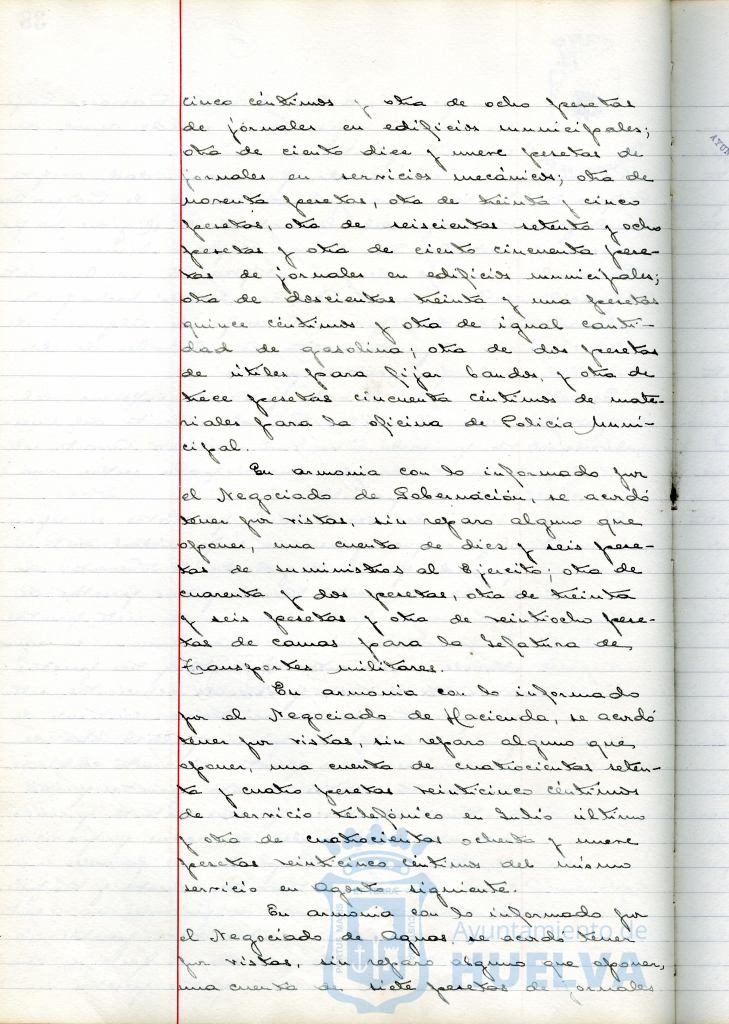 cinco céntimos y otra de ocho pesetas
de jornales en edificios municipales;
otra de ciento diez y nueve pesetas de
jornales en servicios mecánicos; otra de
noventa pesetas, otra de treinta y cinco
pesetas, otra de seiscientas setenta y ocho
pesetas y otra de ciento cincuenta pese-
tas de jornales en edificios municipales;
otra de doscientas treinta y una pesetas
quince céntimos y otra de igual canti-
dad de gasolina; otra de dos pesetas
de útiles para fijar bandos, y otra de
trece pesetas cincuenta céntimos de mate-
riales para la oficina de Policía Muni-
cipal.
En armonia con lo informado por
el Negociado de Gobernación, se acordó
tener por vistas, sin reparo alguno que
oponer, una cuenta de diez y seis pese-
tas de suministros al Ejercito; otra de
cuarenta y dos pesetas, otra de treinta
y seis pesetas y otra de veintiocho pese-
tas de camas para la Jefatura de
Transportes militares.
En armonia con lo informado
por el Negociado de Hacienda, se acordó
tener por vistas, sin reparo alguno que
oponer, una cuenta de cuatrocientas seten-
ta y cuatro pesetas veinticinco céntimos
de servicio telefónico en Julio último
y otra de cuatrocientas ochenta y nueve
pesetas veinticinco céntimos del mismo
servicio en Agosto siguiente.
En armonia con lo informado por
el Negociado de Aguas, se acordó tener
por vistas, sin reparo alguno que oponer,
una cuenta de siete pesetas de jornales
Ayuntamiento de
HUELVA